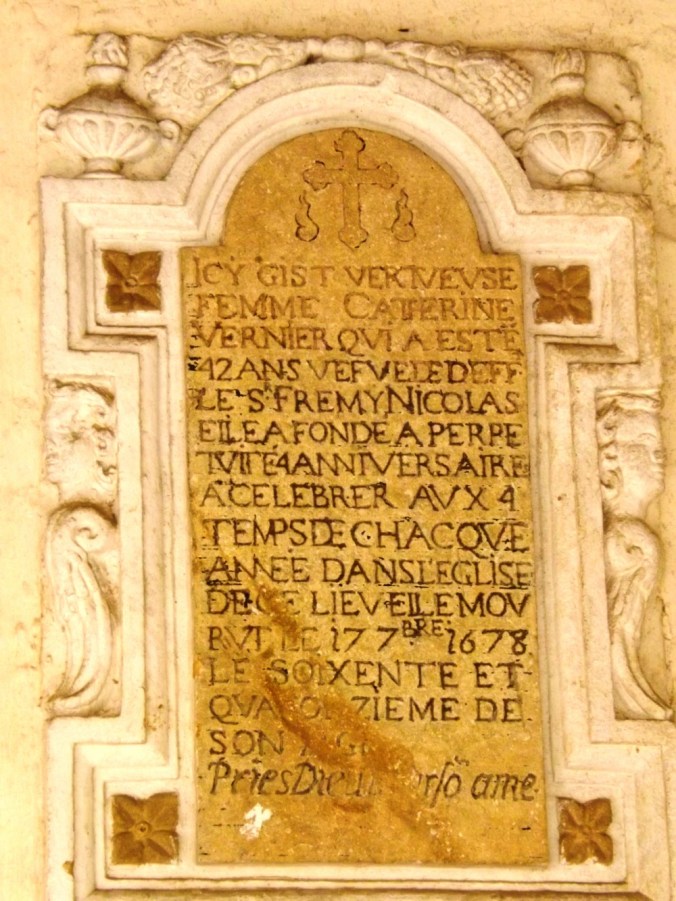 ICY GIST VERTVEVSE
FEMME CATERINE
VERNIER QVI A ESTÉ
42 ANS VEFVE LE DEFF
LE S FREMY NICOLAS
ELLE A FONDE A PERPE
TVITÉ 4 ANNIVERSAIRE
A CELEBRER AVX 4
TEMPS DE CHACQVE
AMEE DANS L'EGLISE
DE CE LIEV ELLE MOV
RVT LE 17 7BRE 1678.
LE SOIXENTE ET
QUA ZIEME DE
SON
Pries Dieu sõ ame.